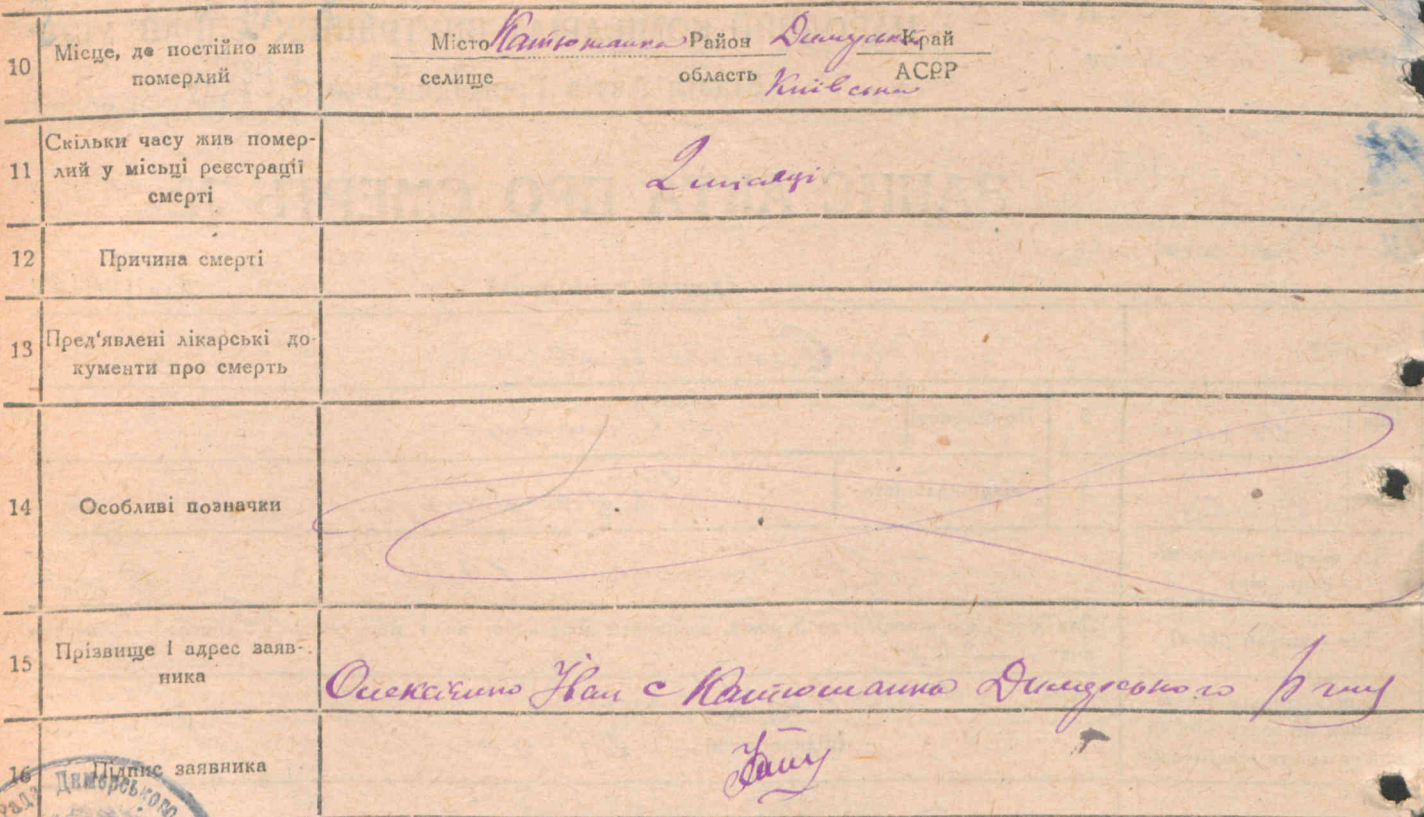 10 Місце, де постійно жив померлий
Місто Катюжанка Район Димерський Край
селище область Київська АСРР
11 Скільки часу жив помер-
лий у місьці реєстрації
смерті
2 місяці
12 Причина смерті
13 Пред'явлені лікарські до-
кументи про смерть
14 Особливі позначки
15 Прізвище і адрес заяв-
ника
Іван с Катюжанка Димерського р-ну
16 Підпис заявника
Рада Димерського